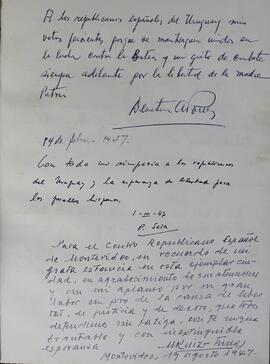 A los republicanos españoles del Uruguay mis
votos fervientes porque se mantengan unidos en
la lucha contra la y un grito de combate
siempre adelante por la libertad de la madre
Patria
14 de febrero 1947.
Con toda mi simpatía a los republicanos
del Uruguay y la esperanza de libertad para
los pueblos hispanos.
1-III-47
P. Sala
Para el Centro Republicano Español
de Montevideo, en recuerdo de mi
grata estancia en esta ejemplar ciu-
dad, en agradecimiento de sus atenciones
y con mi aplauso por su gran
labor en pro de la causa de liber
tad, de justicia y de decoro, que todos
defendemos sin fatiga, con fe inque
brantable y con inextinguible
esperanza
M Ruiz Funes
Montevideo, 19 agosto 1947.